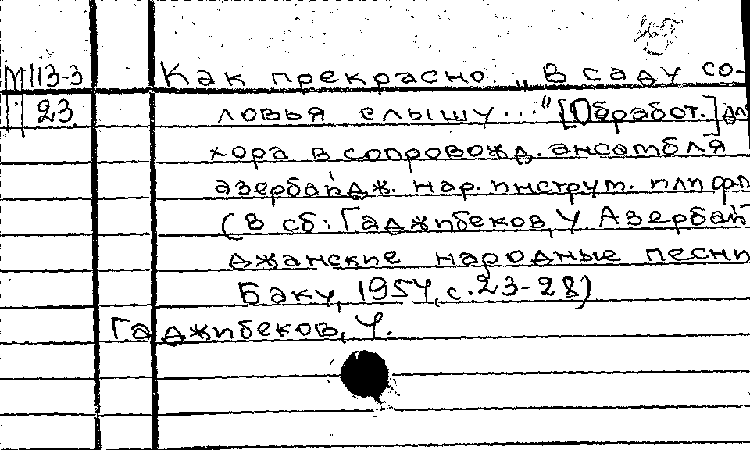 М 113-3 Как прекрасно. „В саду со-
23 ловья слышу..." [Обработ.] дл
хора в сопровожд. ансамбля
азербайдж. нар. инструм. или фп
(В сб: Гаджибеков, У Азербай-
джанские народные песни
Баку, 1957, с. 23-28)
Гаджибеков, У.